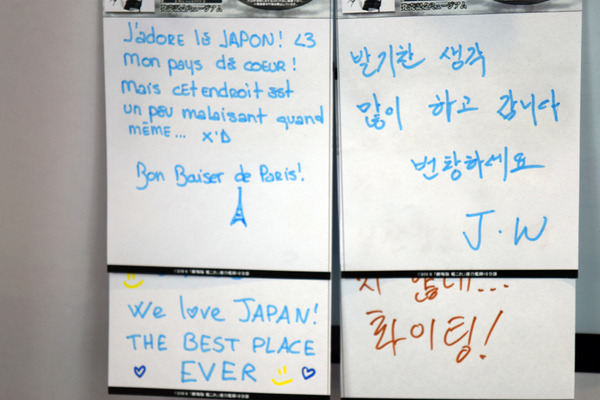 J'adore le JAPON! <3
mon pays de COEUR!
mais CET endroit est
un peu malaisant quand
MÊME... X'D
Bon Baiser de Paris!
We love JAPAN!
THE BEST PLACE
EVER
발기찬 생각
많이 하고 갑니다
번창하세요
J.W
화이팅!